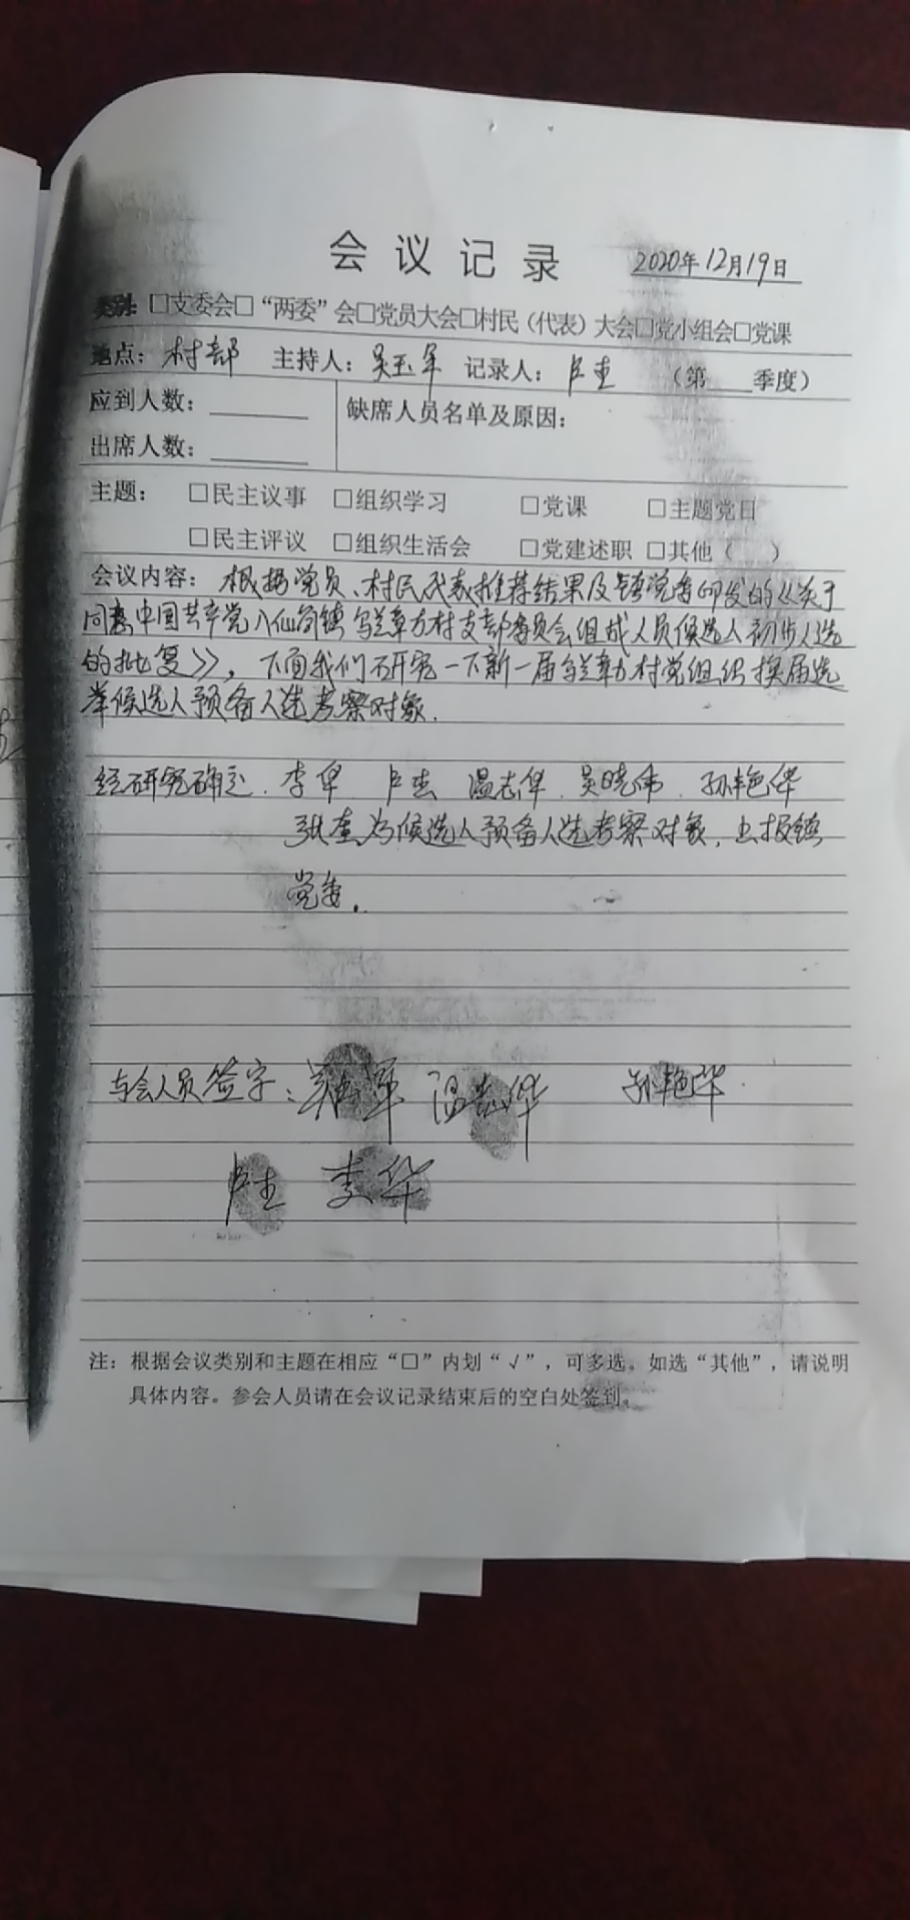 会议记录 2020年12月19日
类别：□支委会□“两委”会□党员大会□村民（代表）大会□党小组会□党课
地点：村部 主持人：吴玉军 记录人：卢圭 （第 季度）
应到人数：
缺席人员名单及原因：
出席人数：
主题： □民主议事 □组织学习 □党课 □主题党日
□民主评议 □组织生活会 □党建述职 □其他（ ）
会议内容：根据党员、村民代表推荐结果及镇党委印发的《关于
同意中国共产党八仙筒镇乌兰章古村支部委员会组成人员候选人初步人选
的批复》，下面我们研究一下新一届乌兰章古村党组织换届选
举候选人预备人选考察对象.
经研究确定.李华 卢圭 温志华.吴晓伟.孙艳华
张奎为候选人预备人选考察对象，上报镇
党委.
与会人员签字：吴玉军 温志华 孙艳华
卢圭 李华
注：根据会议类别和主题在相应“□”内划“√”，可多选。如选“其他”，请说明
具体内容。参会人员请在会议记录结束后的空白处签到。